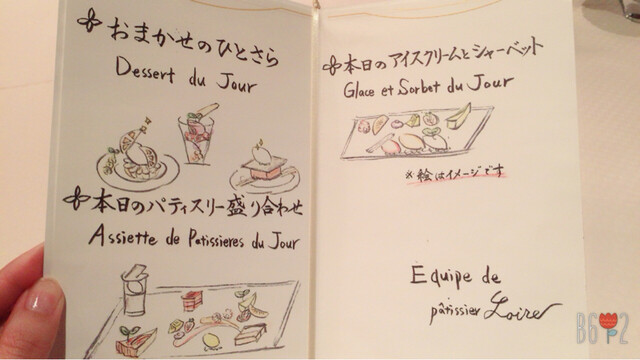 おまかせのひとさら
Dessert du Jour
本日のパティスリー盛り合わせ
Assiette de Patissieres du Jour
本日のアイスクリームとシャーベット
Glace et Sorbet du Jour
※絵はイメージです
Equipe de
pâtissier Loire
B612